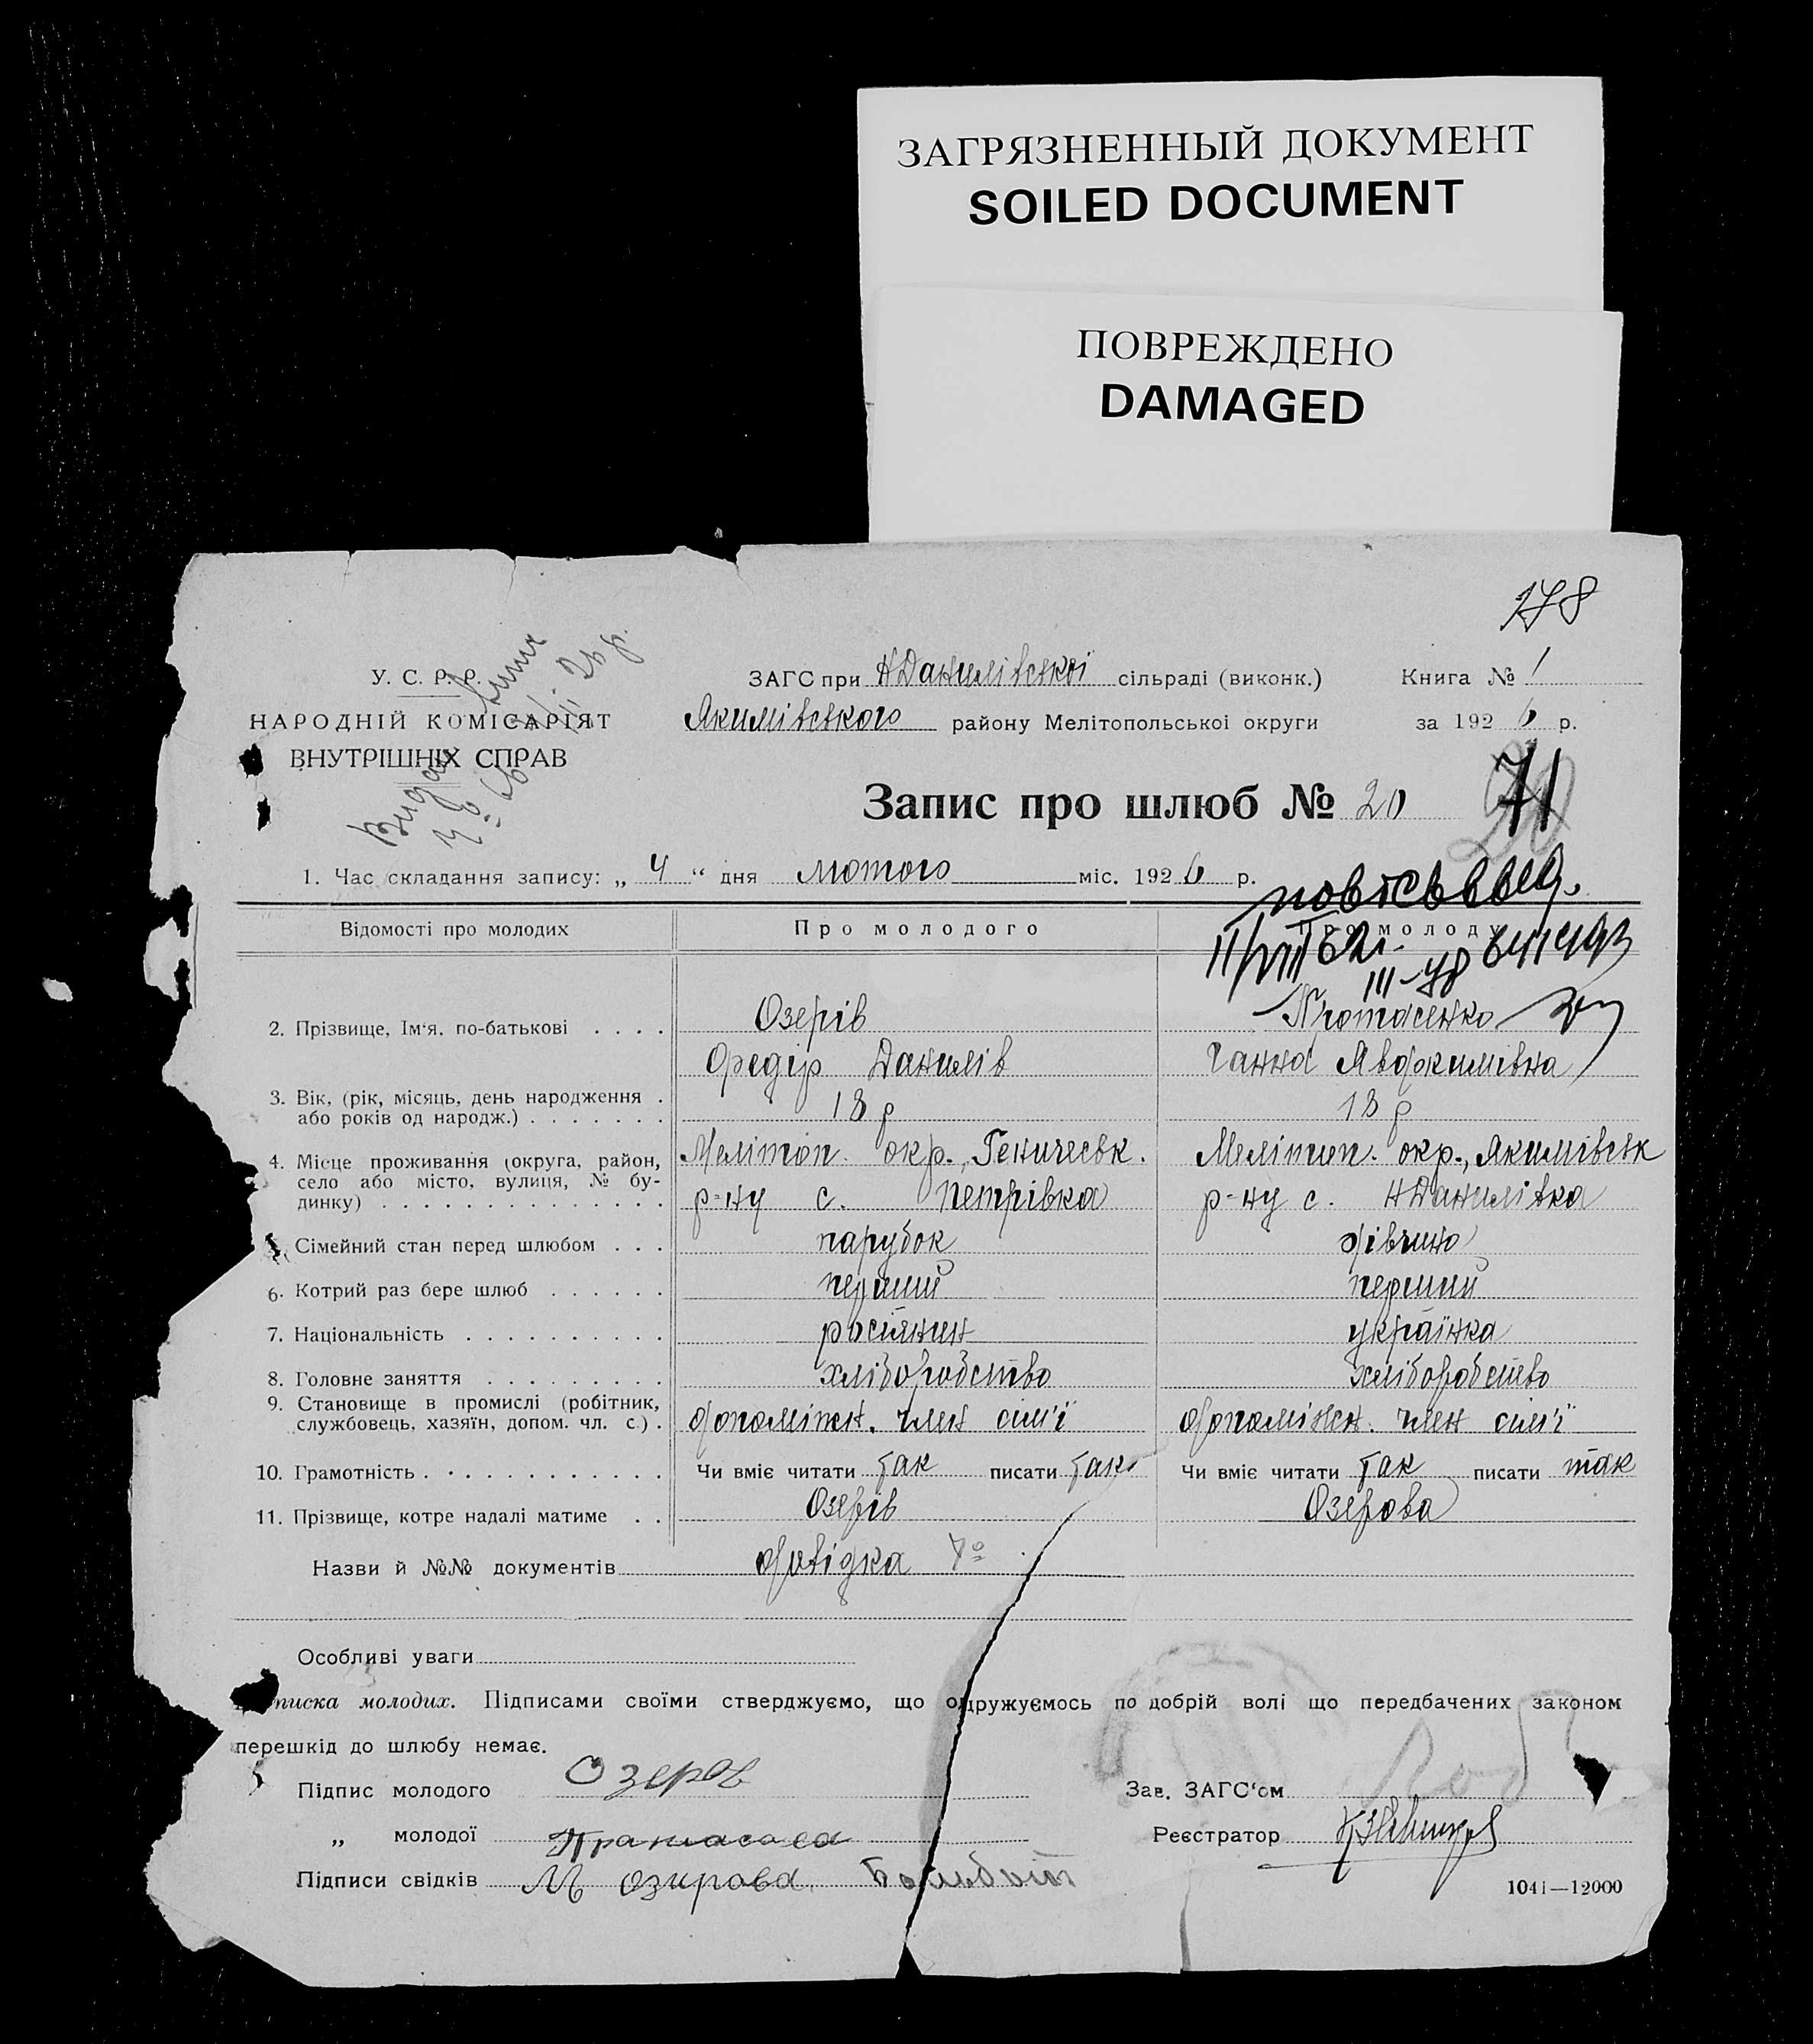 ЗАГРЯЗНЕННЫЙ ДОКУМЕНТ
SOILED DOCUMENT
ПОВРЕЖДЕНО
DAMAGED
178
У. С. Р. Р.
НАРОДНІЙ КОМІСАРІЯТ
ВНУТРІШНІХ СПРАВ
№ 66
26 р.
ЗАГС при НДанилівської сільраді (виконк.)
Книга № 1
Якимівського району Мелітопольської округи
за 1926 р.
Запис про шлюб № 20
71
1. Час складання запису: „ 4 “ дня лютого міс. 1926 р.
Відомості про молодих
Про молодого
Про молоду
III-78
2. Прізвище, Ім‘я. по-батькові . . . .
Озерів
Протасенко
Федір Данилів
Ганна Явфкимівна
3. Вік, (рік, місяць, день народження .
або років од народж.) . . . . . . .
18 р
18 р
4. Місце проживання (округа, район,
село або місто, вулиця, № бу-
динку) . . . . . . . . . . . . . .
Мелітоп. окр., Геническ.
р-ну с. Петрівка
Мелітоп. окр., Якимівськ
р-ну с. НДанилівка
Сімейний стан перед шлюбом . . .
парубок
дівчина
6. Котрий раз бере шлюб . . . . . .
перший
перший
7. Національність . . . . . . . . . .
росіянин
українка
8. Головне заняття . . . . . . . . .
хліборобство
хліборобство
9. Становище в промислі (робітник,
службовець, хазяїн, допом. чл. с.) .
допоміжн. член сім'ї
допоміжн. член сім'ї
10. Грамотність . . . . . . . . . . . .
Чи вміє читати так писати так
Чи вміє читати так писати так
11. Прізвище, котре надалі матиме . .
Озерів
Озерова
Назви й №№ документів довідка
Особливі уваги
писка молодих. Підписами своїми стверджуємо, що одружуємось по добрій волі що передбачених законом
перешкід до шлюбу немає.
Підпис молодого Озеров
Зав. ЗАГС‘ом
„ молодої
Реєстратор
Підписи свідків М Озирова
1041—12000